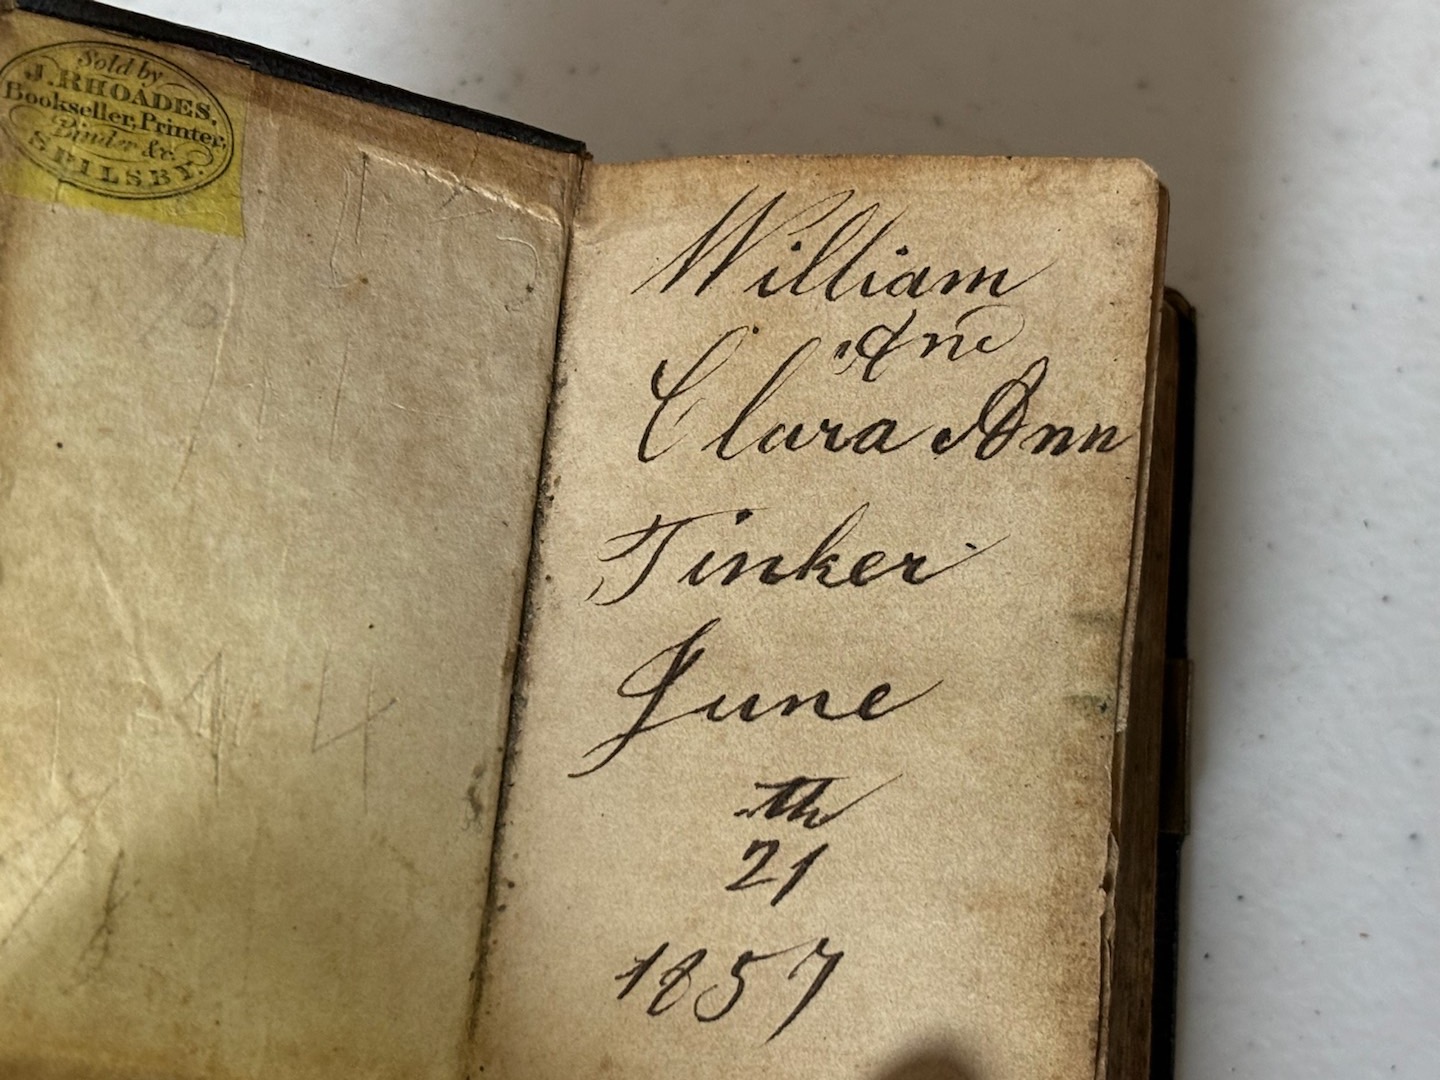 Sold by
J. RHOADES,
Bookseller, Printer,
Binder &c.
SPILSBY.
William
And
Clara Ann
Tinker
June
th
21
1857